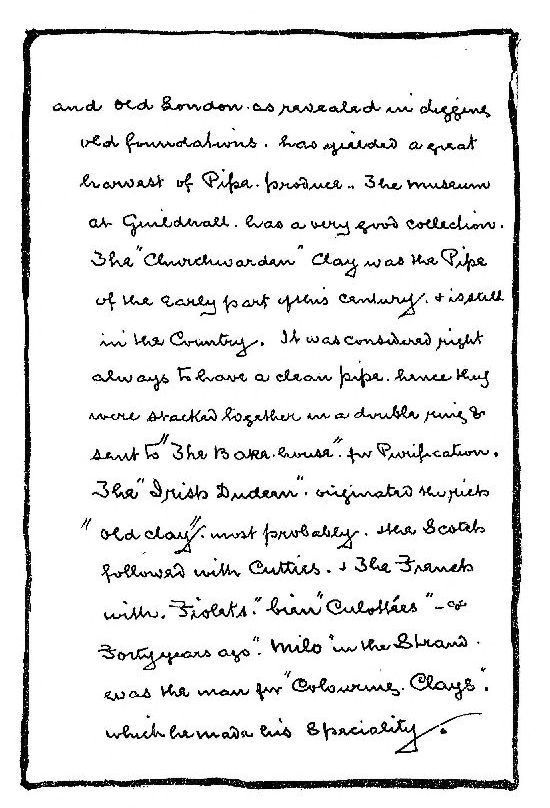 and old London. as revealed in digging
old foundations. has yielded a great
harvest of Pipe. produce.. The museum
at Guildhall. has a very good collection.
The "Churchwarden" Clay was the Pipe
of the early part of this century. & is still
in the Country. It was considered right
always to have a clean pipe. hence they
were stacked together in a double ring &
sent to "The Bake. house". for Purification.
The "Irish Dudeen". originated the rich
"old clay". most probably. the Scotch
followed with Cutties. & The French
with. Fiolets." bien "Culottées" —
Forty years ago". Milo "in the Strand.
was the man for "Colouring. Clays".
which he made his Speciality.